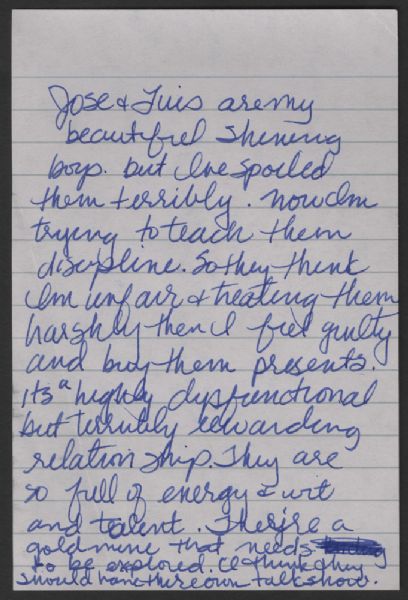 Jose & Luis are my
beautiful shining
boys. but Ive spoiled
them terribly. now Im
trying to teach them
discipline. So they think
Im unfair & treating them
harshly then I feel guilty
and buy them presents.
its a highly dysfunctional
but terribly rewarding
relationship. They are
so full of energy & wit
and talent. Theyre a
goldmine that needs
to be explored. I think they
should have there own talkshow.